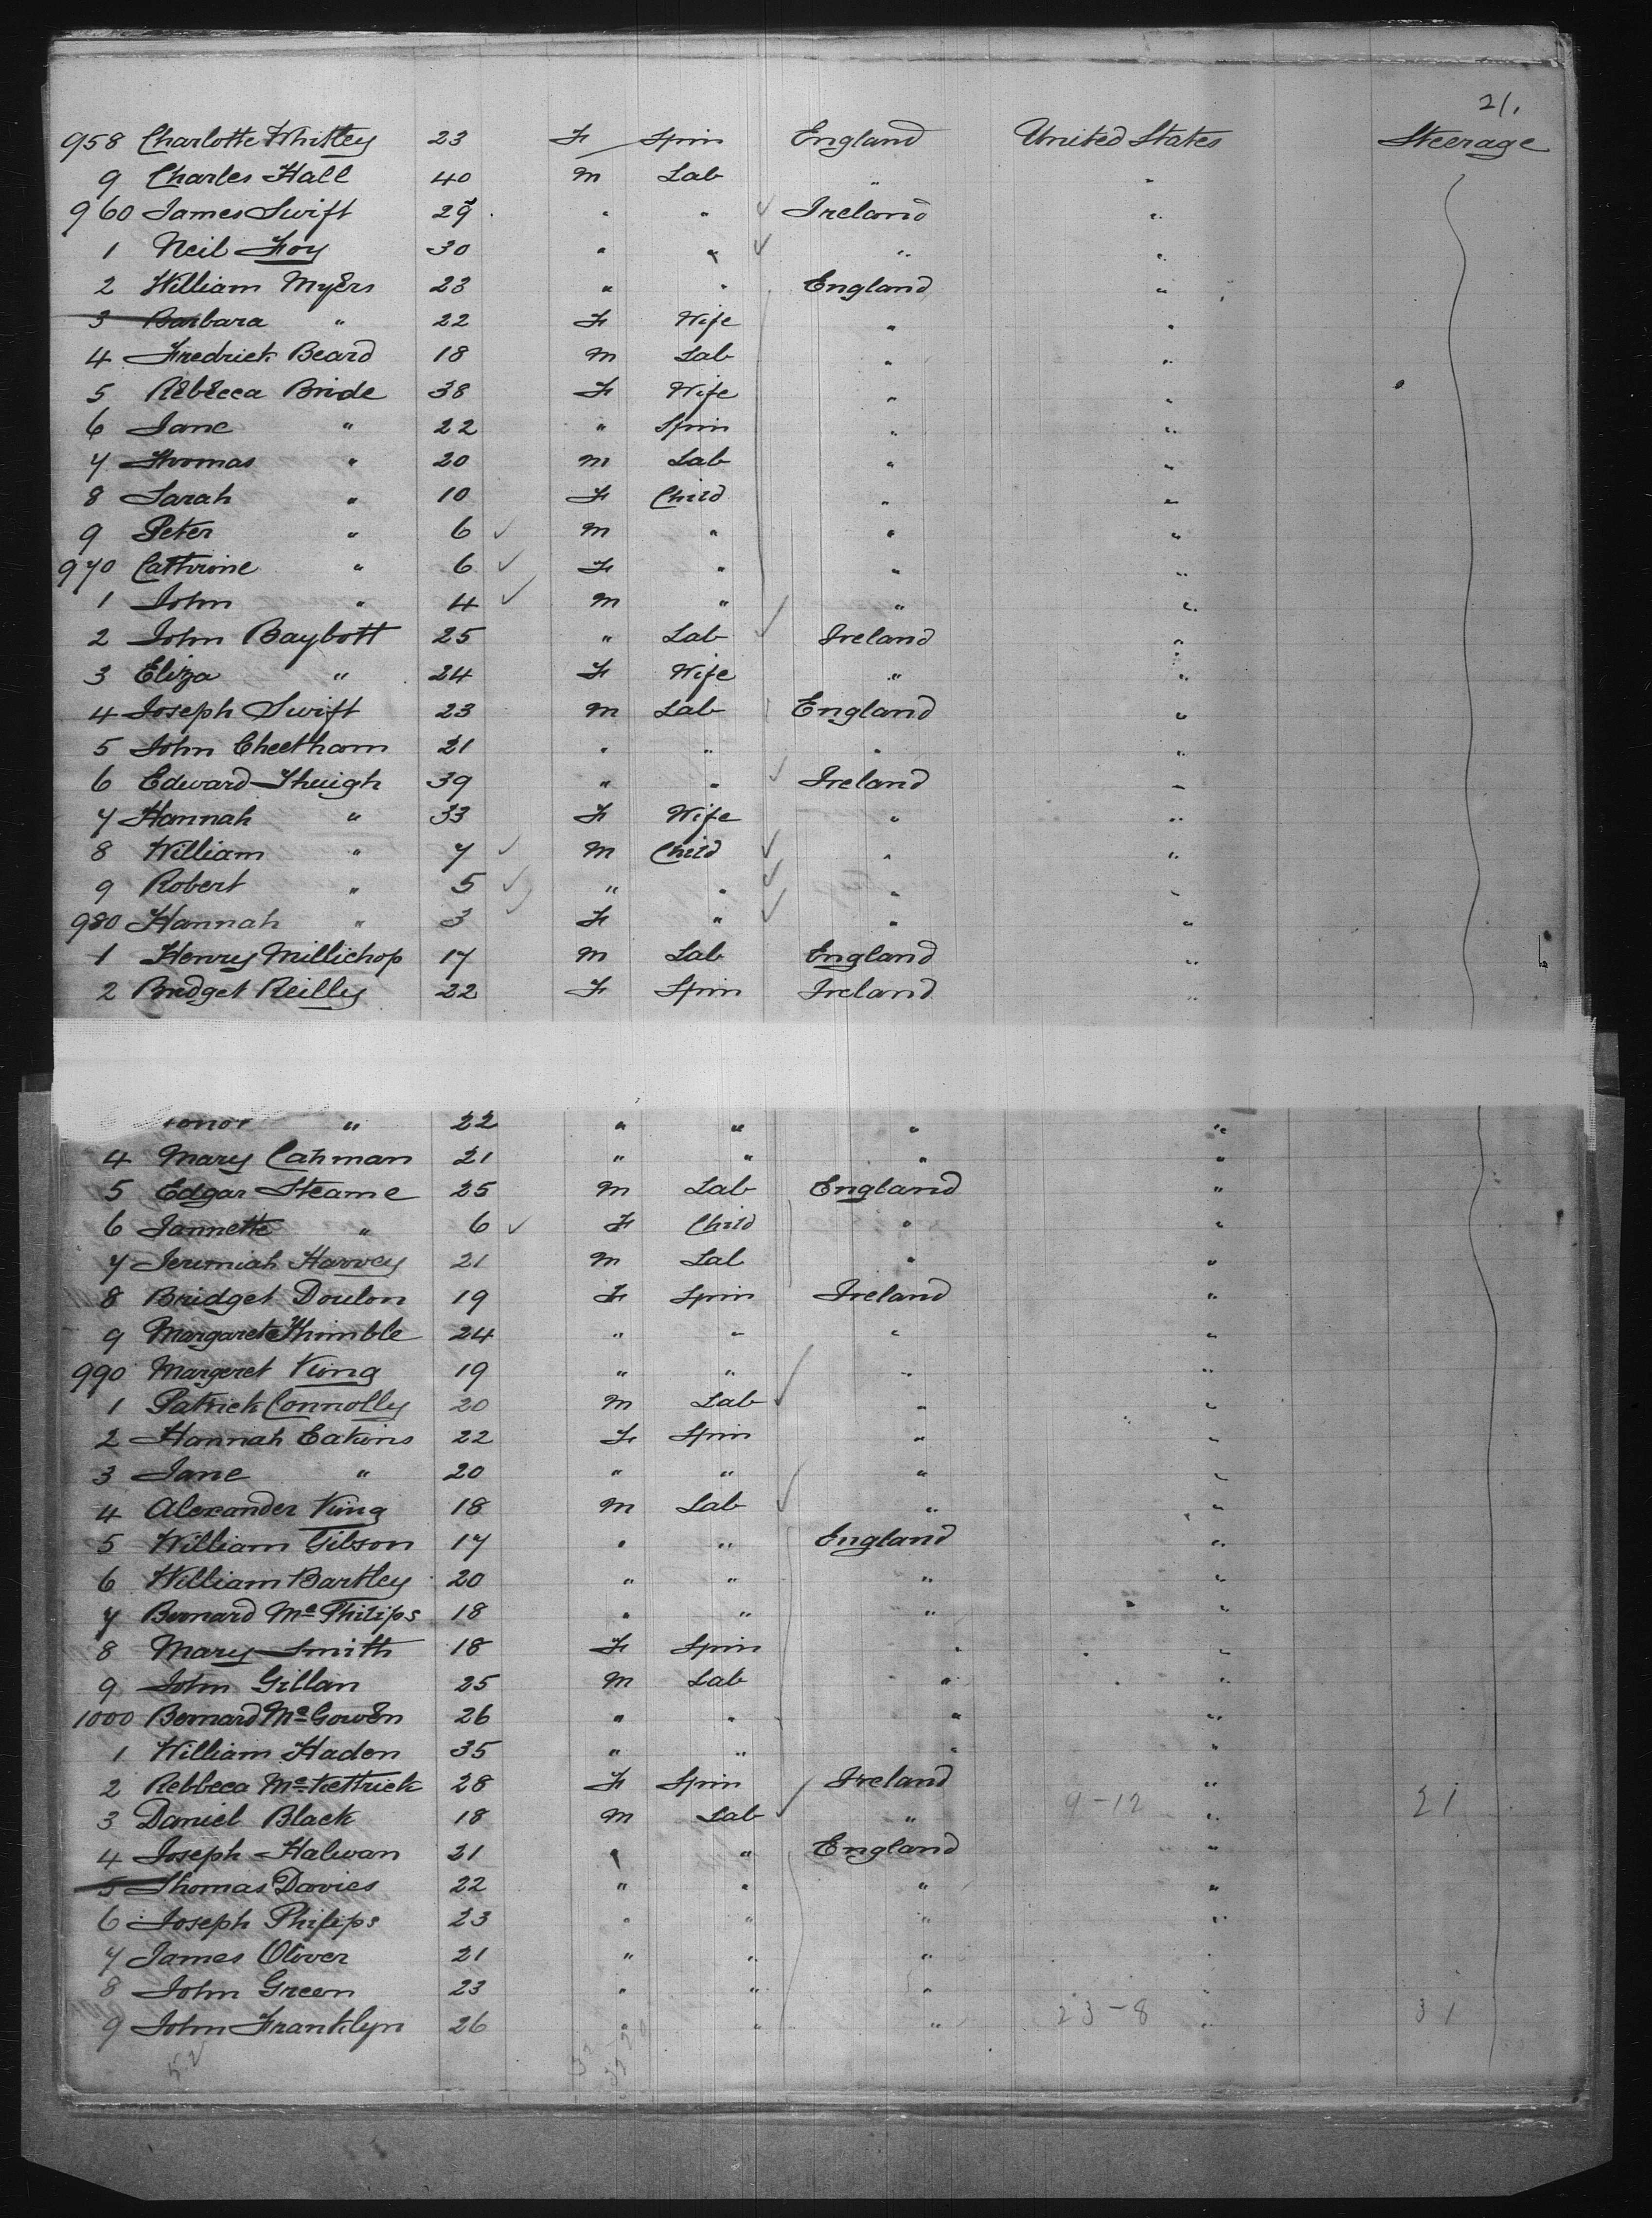 21.
958 Charlotte Whitley 23 F Spin England United States Steerage
9 Charles Hall 40 M Lab " "
960 James Swift 29 " " Ireland "
1 Neil Foy 30 " " " "
2 William Myers 23 " " England "
3 Barbara " 22 F Wife " "
4 Fredrick Beard 18 M Lab " "
5 Rebecca Bride 38 F Wife " "
6 Jane " 22 " Spin " "
7 Thomas " 20 M Lab " "
8 Sarah " 10 F Child " "
9 Peter " 6 M " " "
970 Cathrine " 6 F " " "
1 John " 4 M " " "
2 John Baybott 25 " Lab Ireland "
3 Eliza " 24 F Wife " "
4 Joseph Swift 23 M Lab England "
5 John Cheetham 21 " " " "
6 Edward Thuigh 39 " " Ireland "
7 Hannah " 33 F Wife " "
8 William " 7 M Child " "
9 Robert " 5 " " " "
980 Hannah " 3 F " " "
1 Henry Millichop 17 M Lab England "
2 Bridget Reilly 22 F Spin Ireland "
" 22 " " " "
4 Mary Cahman 21 " " " "
5 Edgar Steame 25 M Lab England "
6 Jannette " 6 F Child " "
7 Jerimiah Harvey 21 M Lab " "
8 Bridget Doulon 19 F Spin Ireland "
9 Margarete Thimble 24 " " " "
990 Margeret King 19 " " " "
1 Patrick Connolly 20 M Lab " "
2 Hannah Eakins 22 F Spin " "
3 Jane " 20 " " " "
4 Alexander King 18 M Lab " "
5 William Gibson 17 " " England "
6 William Bartley 20 " " " "
7 Bernard Mc Philips 18 " " " "
8 Mary Smith 18 F Spin " "
9 John Gillan 25 M Lab " "
1000 Bernard Mc Gowen 26 " " " "
1 William Haden 35 " " " "
2 Rebbeca Mc Kettrick 28 F Spin Ireland "
3 Daniel Black 18 M Lab " 9-12 " 21
4 Joseph Halwan 21 " " England "
5 Thomas Davies 22 " " " "
6 Joseph Philips 23 " " " "
7 James Oliver 21 " " " "
8 John Green 23 " " " "
9 John Franklyn 26 " " " 23-8 " 31
52